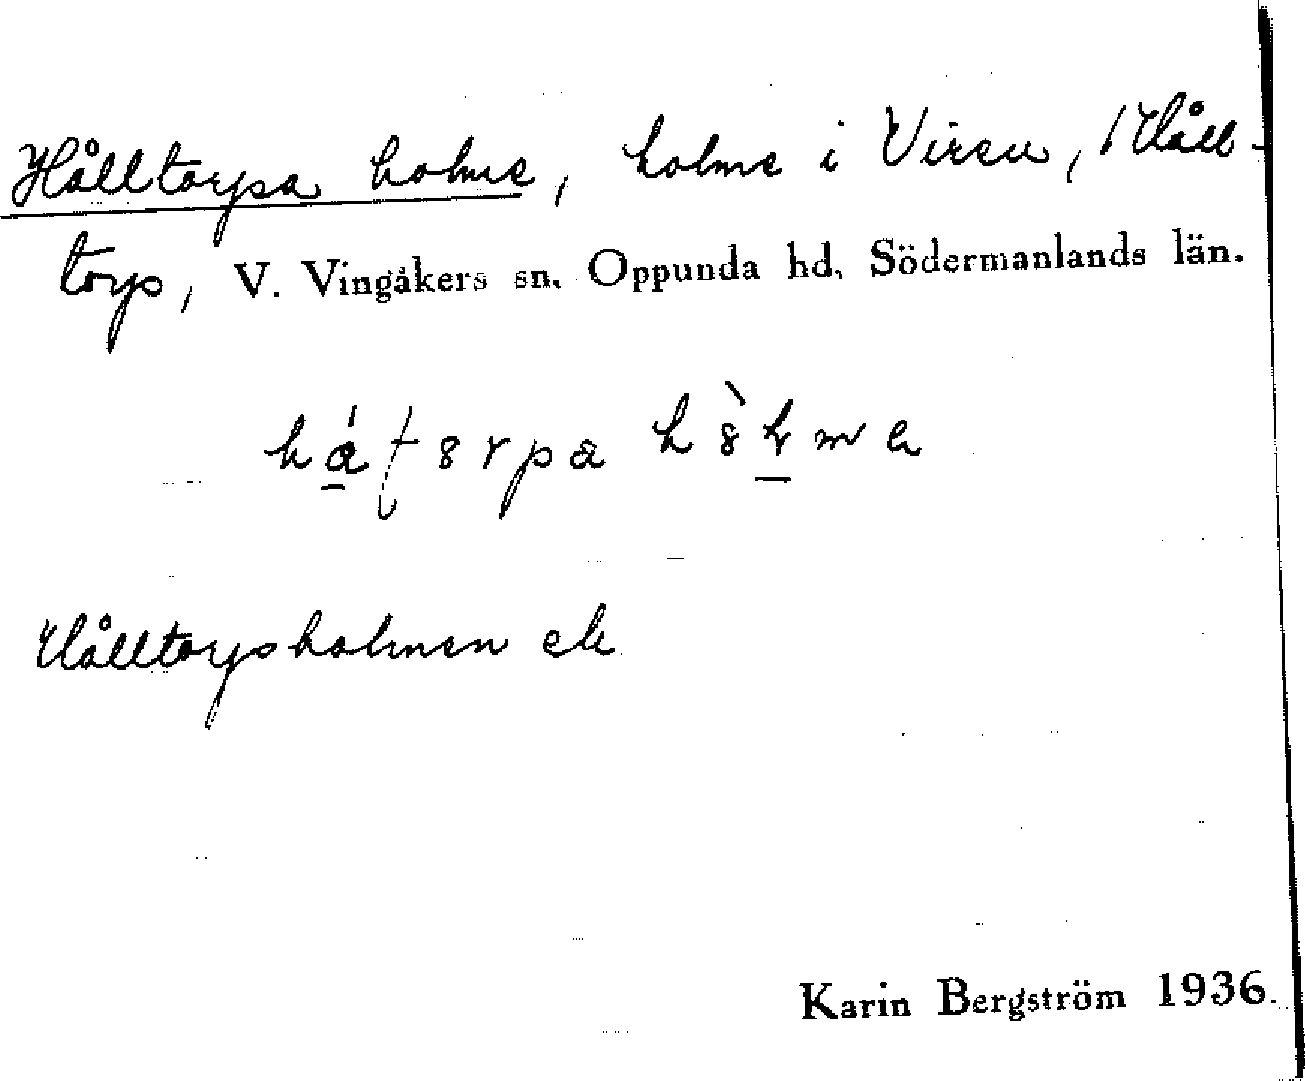 Hålltorpa holme, holme i Viren, / Håll-
torp, V. Vingåkers sn. Oppunda hd, Södermanlands län.
Hålltorpsholmen ek
Karin Bergström 1936.